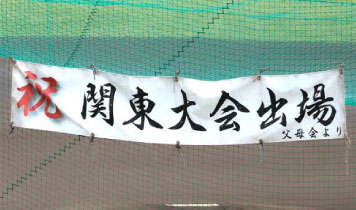 祝 関東大会出場
父母会より